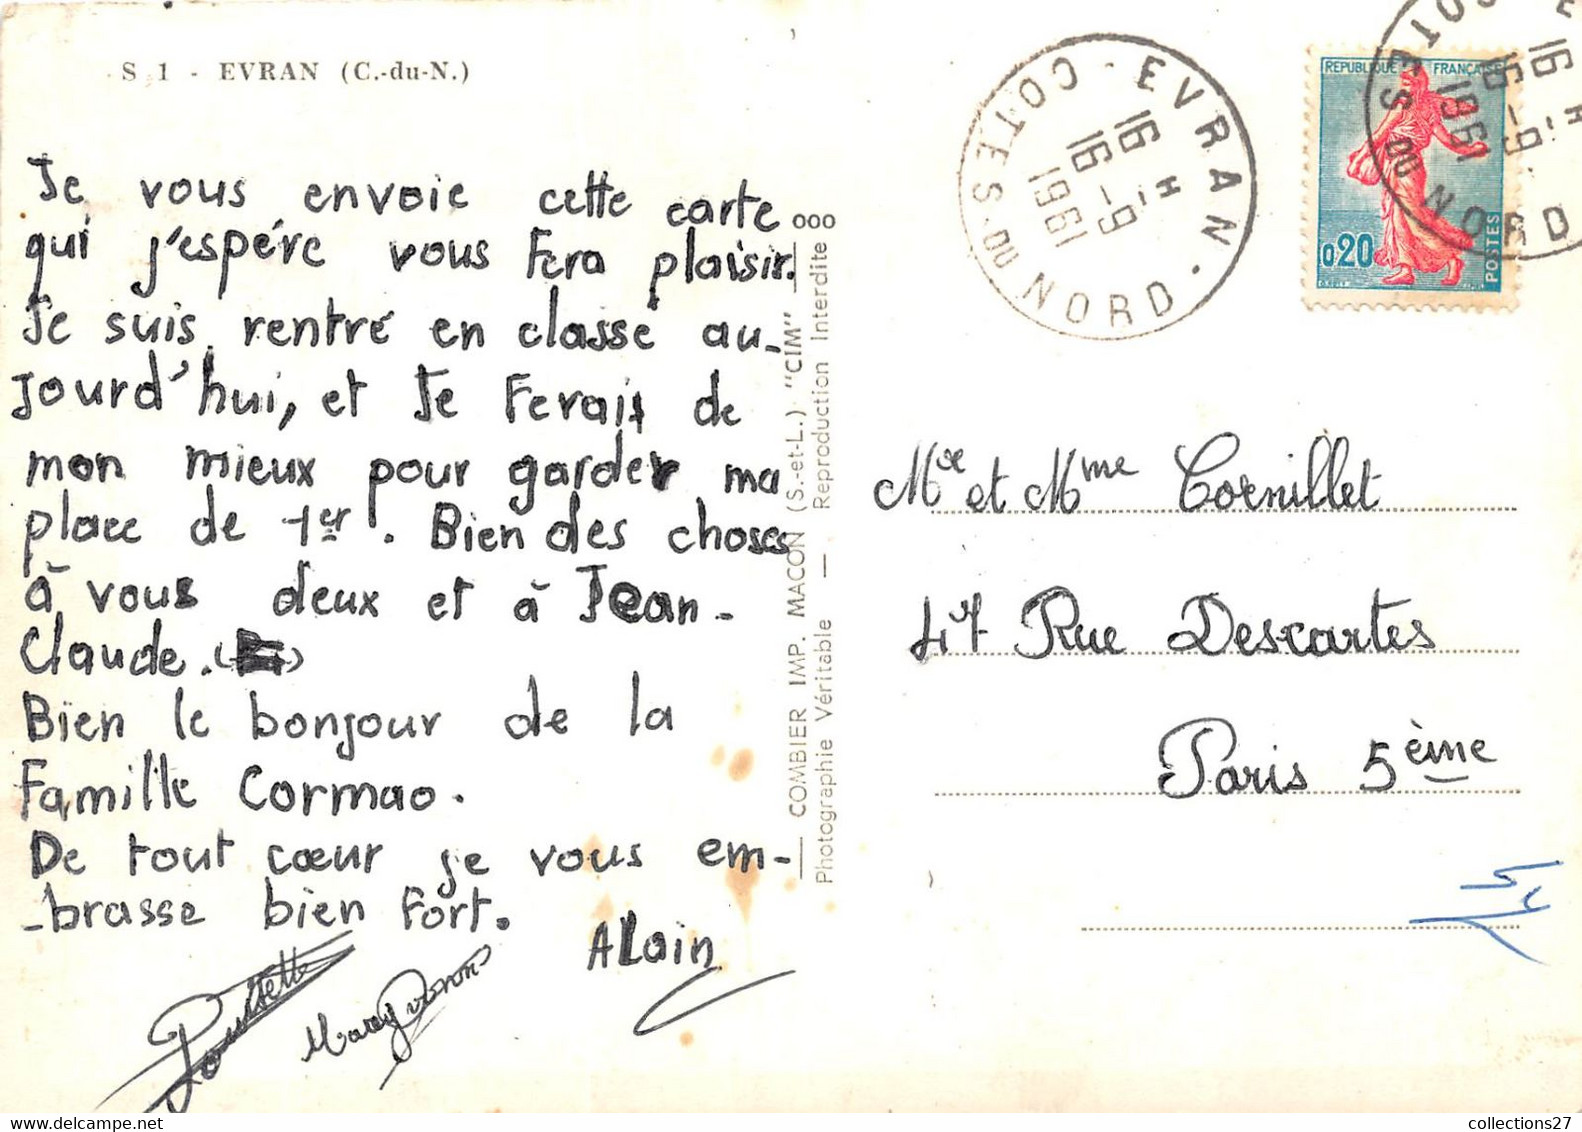 S 1 - EVRAN (C.-du-N.)
Je vous envoie cette carte
qui j'espère vous Fera plaisir.
Je suis rentré en classe au-
Jourd'hui, et Je Ferais de
mon mieux pour garder ma
place de 1er. Bien des choses
à vous deux et à Jean-
Claude.
Bien le bonjour de la
Famille Cormao.
De tout cœur je vous em-
-brasse bien Fort.
ALain
COMBIER IMP. MACON (S.-et-L.) "CIM"
Photographie Véritable — Reproduction Interdite
ooo
EVRAN
COTES-DU-NORD
16 H
16 - 9
1961
REPUBLIQUE FRANÇAISE
0,20
POSTES
EVRAN
COTES DU NORD
16 H
16 - 9
1961
Mr et Mme Cornillet
47 Rue Descartes
Paris 5ème
collections27